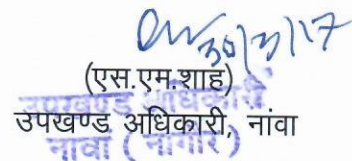 30/3/17
(एस.एम.शाह)
उपखण्ड अधिकारी
उपखण्ड अधिकारी, नांवा
नावां (नागौर)